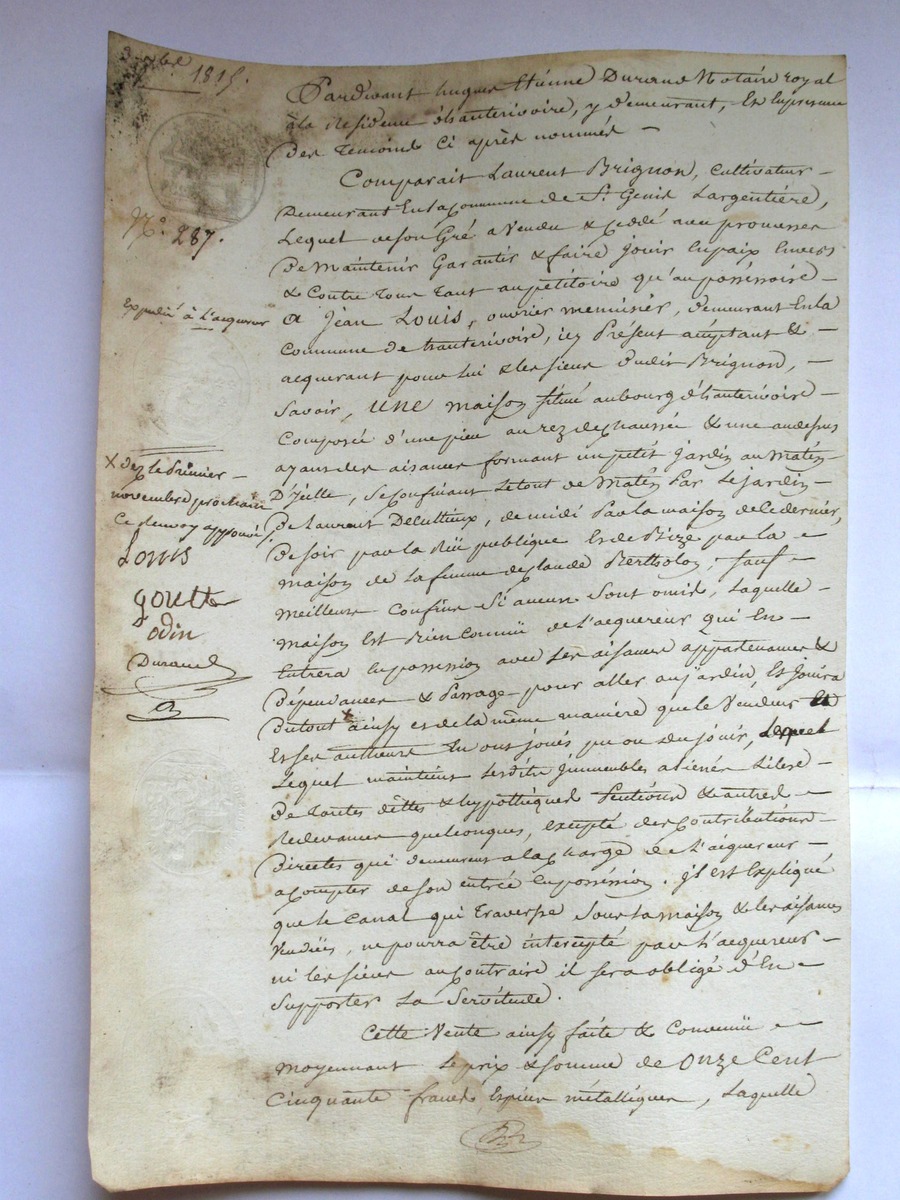 1815.
Pardevant hugues Etienne Durand Notaire royal
à la Residence d'hauterivoire, y demeurant, En présence
Des Temoins Ci après nommés
Comparait Laurent Brignon, cultivateur
Demeurant En la Commune de St. Genis Largentière,
Lequel de son Gré a Vendu & Cédé avec promesse
De Maintenir Garantir & faire jouir En paix Envers
& Contre Tous Tant au pétitoire qu'au posséssoire
N.o 287.
A Jean Louis, ouvrier menuisier, demeurant En la
Expedié à L'acquereur
Commune de hauterivoire, icy Présent acéptant &
acquerant pour lui & les siens dudit Brignon,
Savoir, UNE maison situé au bourg d'hauterivoire
Composée d'une pièce au rez de chaussée & une au dessus
ayant des aisances formant un petit jardin au Matin
D'jcelle, Se Confinant Le tout de Matin Par le jardin
De Laurent Decultieux, de midi Par la maison de le dernier,
De soir par la Rüe publique Et de Bize par la
maison de La femme de Claude Bertholon, sauf
meilleurs Confins Si aucuns Sont omis, Laquelle
maison Est Bien Connuë de L'acquereur qui En
Entrera En possession avec Ses aisances appartenances &
Dépendances & Passage pour aller au jardin, Et Jouira
Du tout x ainsy et de la même manière que le Vendeur
Et Ses autheurs En ont joués pu ou dû jouir,
Lequel maintient Lesdits jmmeubles aliénés Libres
De Toutes dêttes & hypothèques Pentions & autres
Redevances quelconques, excepté des Contributions
Directes qui demeurent a la Charge de L'acquereur
a Compter de son entrée En poséssion. jl est Expliqué
que le Canal qui Traverse Sous la maison & les aisances
Venduës, ne pourra être intercepté par L'acquereur
ni les siens au Contraire il sera obligé d'En
Supporter La Servitude.
Cette Vente ainsy faite & Convenuë
moyennant Le prix & somme de Onze Cent
Cinquante francs Espèces métalliques, Laquelle
X dez le Premier
novembre prochain
Ce renvoy approuvé.
Louis
goutte
odin
Durand